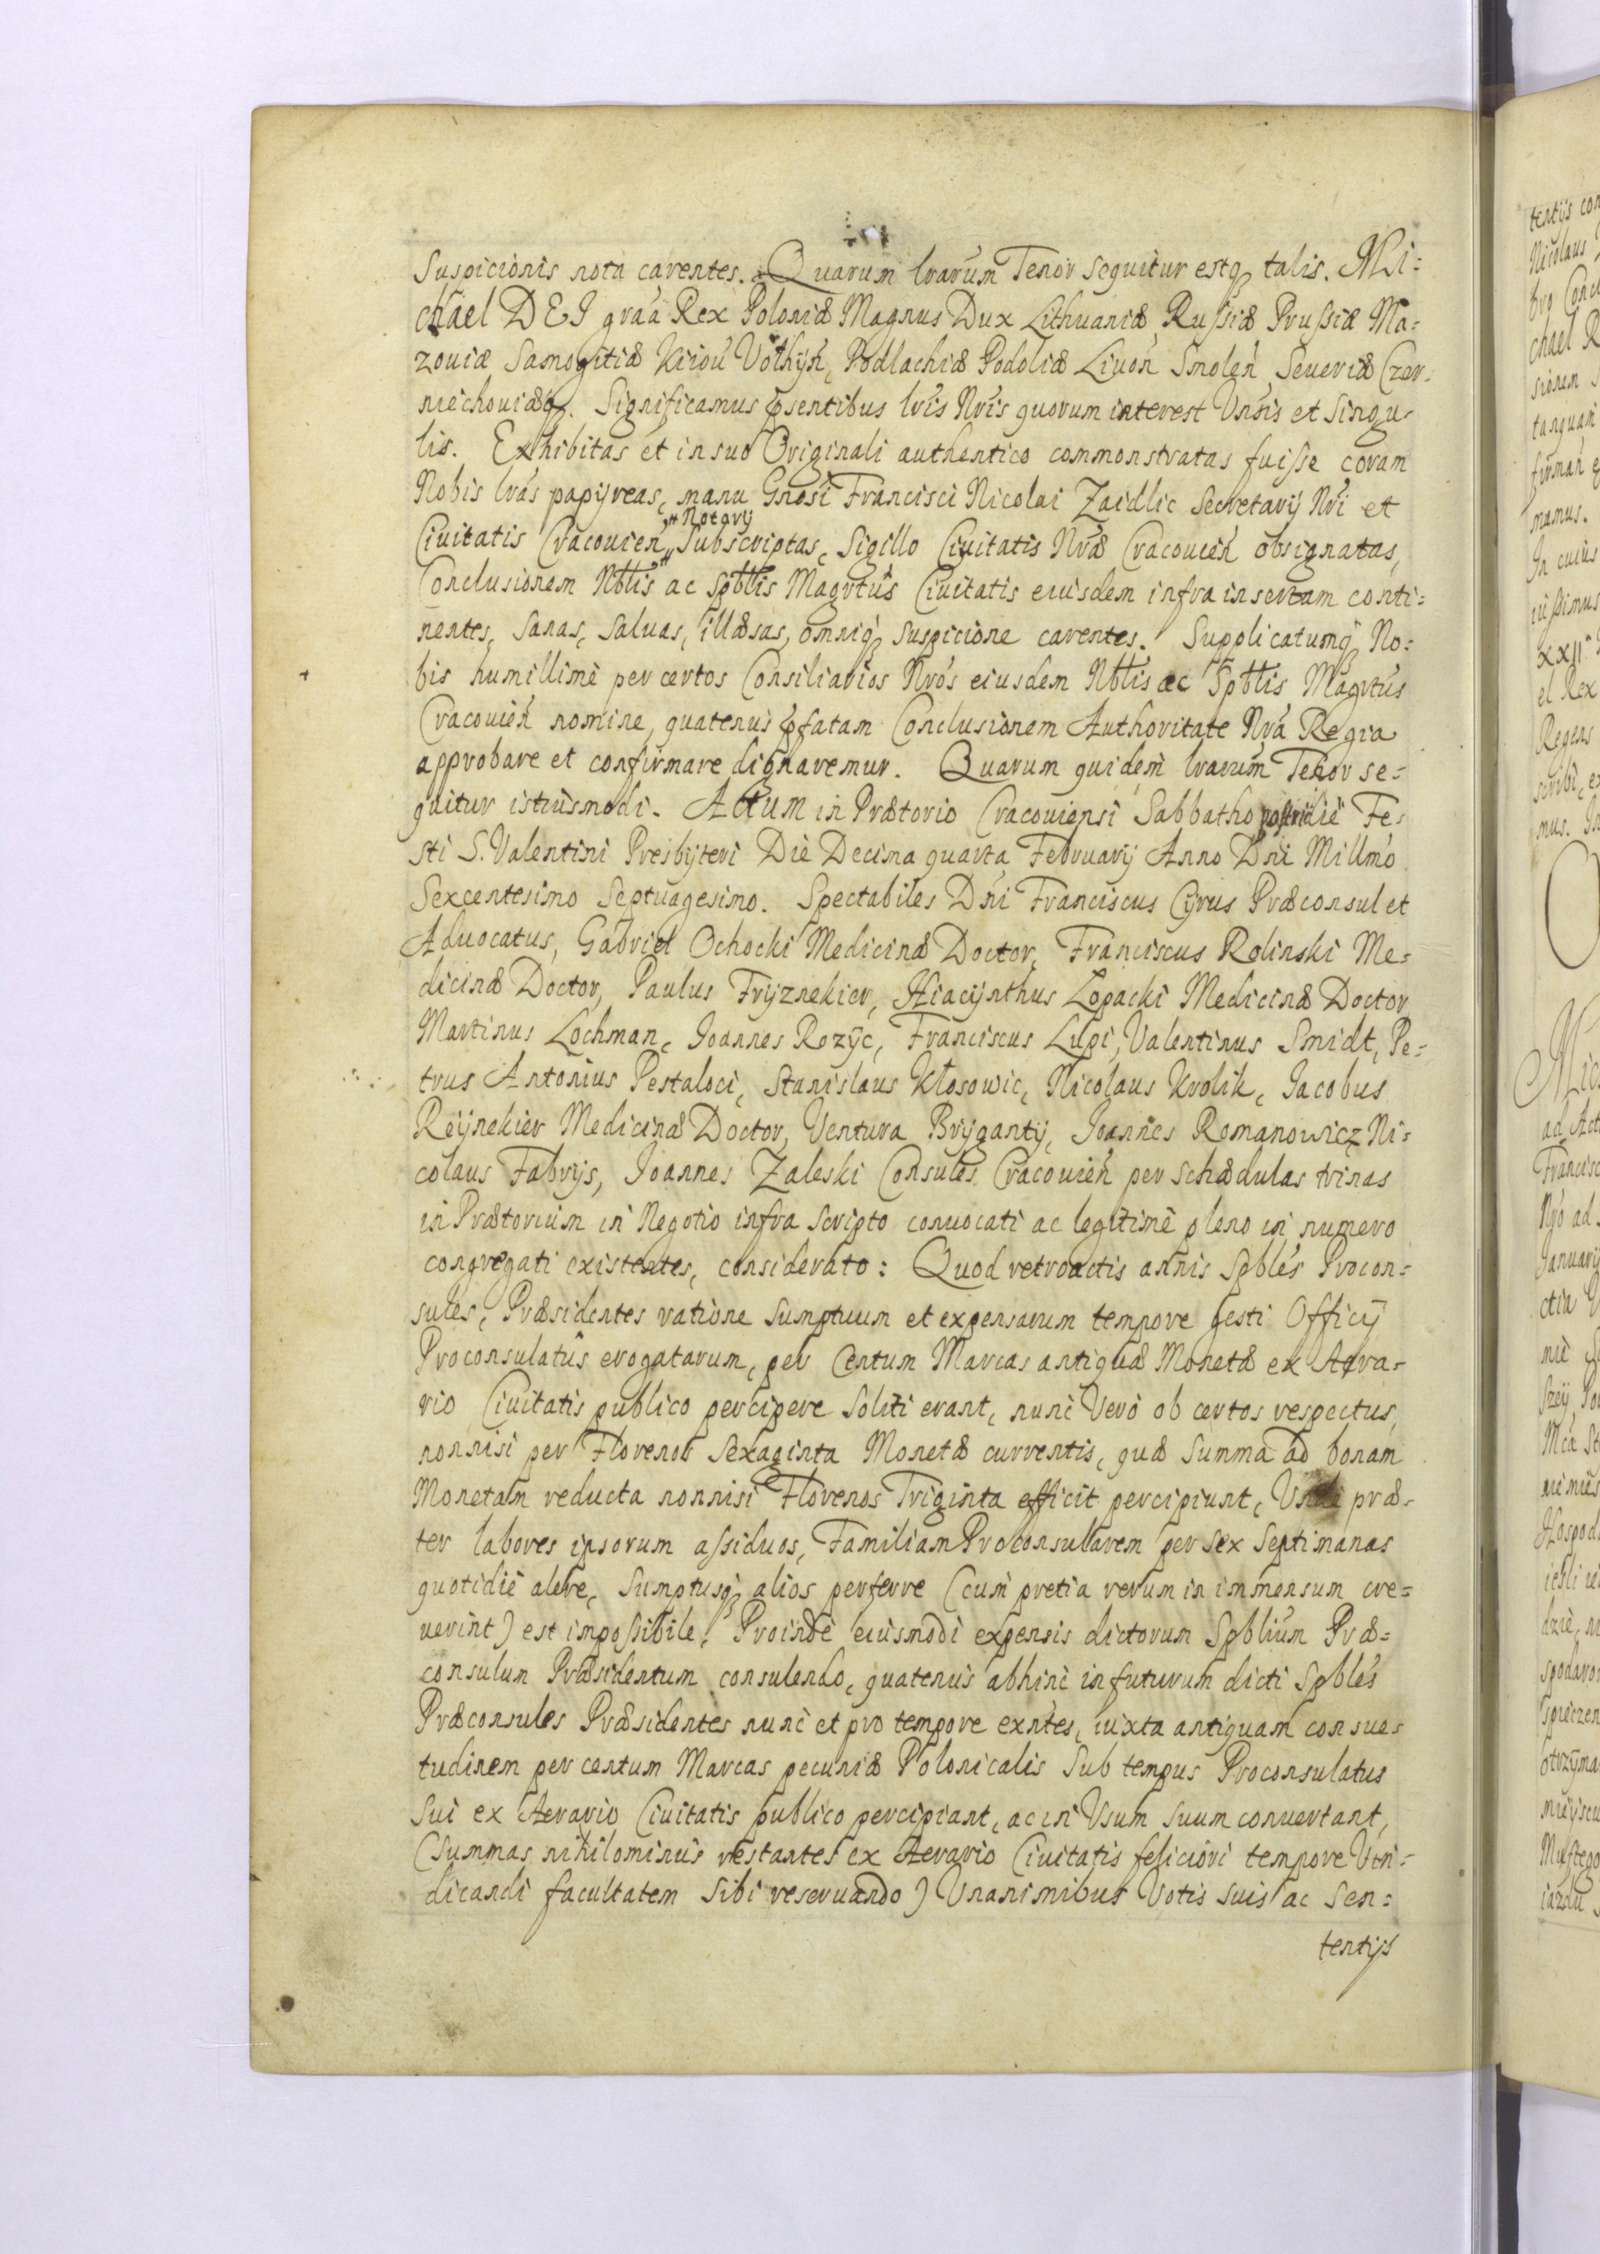 Suspicionis nota carentes. Quarum lrarum Tenor sequitur estq talis. Mi=
chael DEI graa Rex Poloniæ Magnus Dux Lithuaniæ Russiæ Prussiæ Ma=
zouiæ Samogitiæ Kiiou Vothyn, Podlachiæ Podoliæ Liuon Smolen Seueriæ Czer-
niechouiæq. Significamus psentibus lris Nris quorum interest Vnsis et Singu-
lis. Exhibitas et in suo Originali authentico commonstratas fuisse coram
Nobis lras papyreas, manu Gnosi Francisci Nicolai Zaidlic Secretarij Nri et
Ciuitatis Cracouien "Notarij Subscriptas, Sigillo Ciuitatis Nræ Cracouien obsignatas,
Conclusionem Nbtlis ac Spbtlis Magrtus Ciuitatis eiusdem infra insertam conti=
nentes, Sanas, Saluas, illæsas, omniq suspicione carentes. Supplicatumq No=
bis humillime per certos Consiliarios Nros eiusdem Nbtlis ac Spbtlis Magrtus
Cracouien nomine, quatenus pfatam Conclusionem Authoritate Nra Regia
approbare et confirmare dignaremur. Quarum quidem lrarum Tenor se=
quitur istiusmodi. Actum in Prætorio Cracouiensi Sabbatho postridie Fe=
sti S. Valentini Presbyteri Die Decima quarta Februarij Anno Dni Millmo
Sexcentesimo Septuagesimo. Spectabiles Dni Franciscus Cyrus Præconsul et
Aduocatus, Gabriel Ochocki Medicinæ Doctor, Franciscus Rolinski Me=
dicinæ Doctor, Paulus Fryznekier, Hiacynthus Lopacki Medicinæ Doctor
Martinus Lochman, Joannes Rozyc, Franciscus Lupi, Valentinus Smidt, Pe=
trus Antonius Pestaloci, Stanislaus Kłosowic, Nicolaus Krolik, Jacobus
Reynekier Medicinæ Doctor, Ventura Brygantij, Joannes Romanowicz Ni=
colaus Fabrijs, Joannes Zaleski Consules Cracouien per schædulas trinas
in Prætorium in Negotio infra scripto conuocati ac legitime pleno in numero
congregati existentes, considerato: Quod retroactis annis Spbles Procon=
sules, Præsidentes ratione Sumptuum et expensarum tempore gesti Officij
Proconsulatus erogatarum, per Centum Marcas antiquæ Monetæ ex Aera=
rio Ciuitatis publico percipere Soliti erant, nunc Vero ob certos respectus,
nonnisi per Florenos Sexaginta Monetæ currentis, quæ Summa ad bonam
Monetam reducta nonnisi Florenos Triginta efficit percipiunt, Vnde præ=
ter labores ipsorum assiduos, Familiam Proconsularem per Sex Septimanas
quotidie alere, Sumptusq alios perferre (cum pretia rerum in immensum cre=
uerint) est impossibile. Proinde eiusmodi expensis dictorum Spblium Præ=
consulum Præsidentum consulendo, quatenus abhinc in futurum dicti Spbles
Præconsules Præsidentes nunc et pro tempore exntes, iuxta antiquam consue=
tudinem per centum Marcas pecuniæ Polonicalis Sub tempus Proconsulatus
Sui ex Aerario Ciuitatis publico percipiant, ac in Vsum suum conuertant,
(Summas nihilominus restantes ex Aerario Ciuitatis feliciori tempore Vin=
dicandi facultatem Sibi reseruando) Vnanimibus Votis suis ac Sen=
tentijs